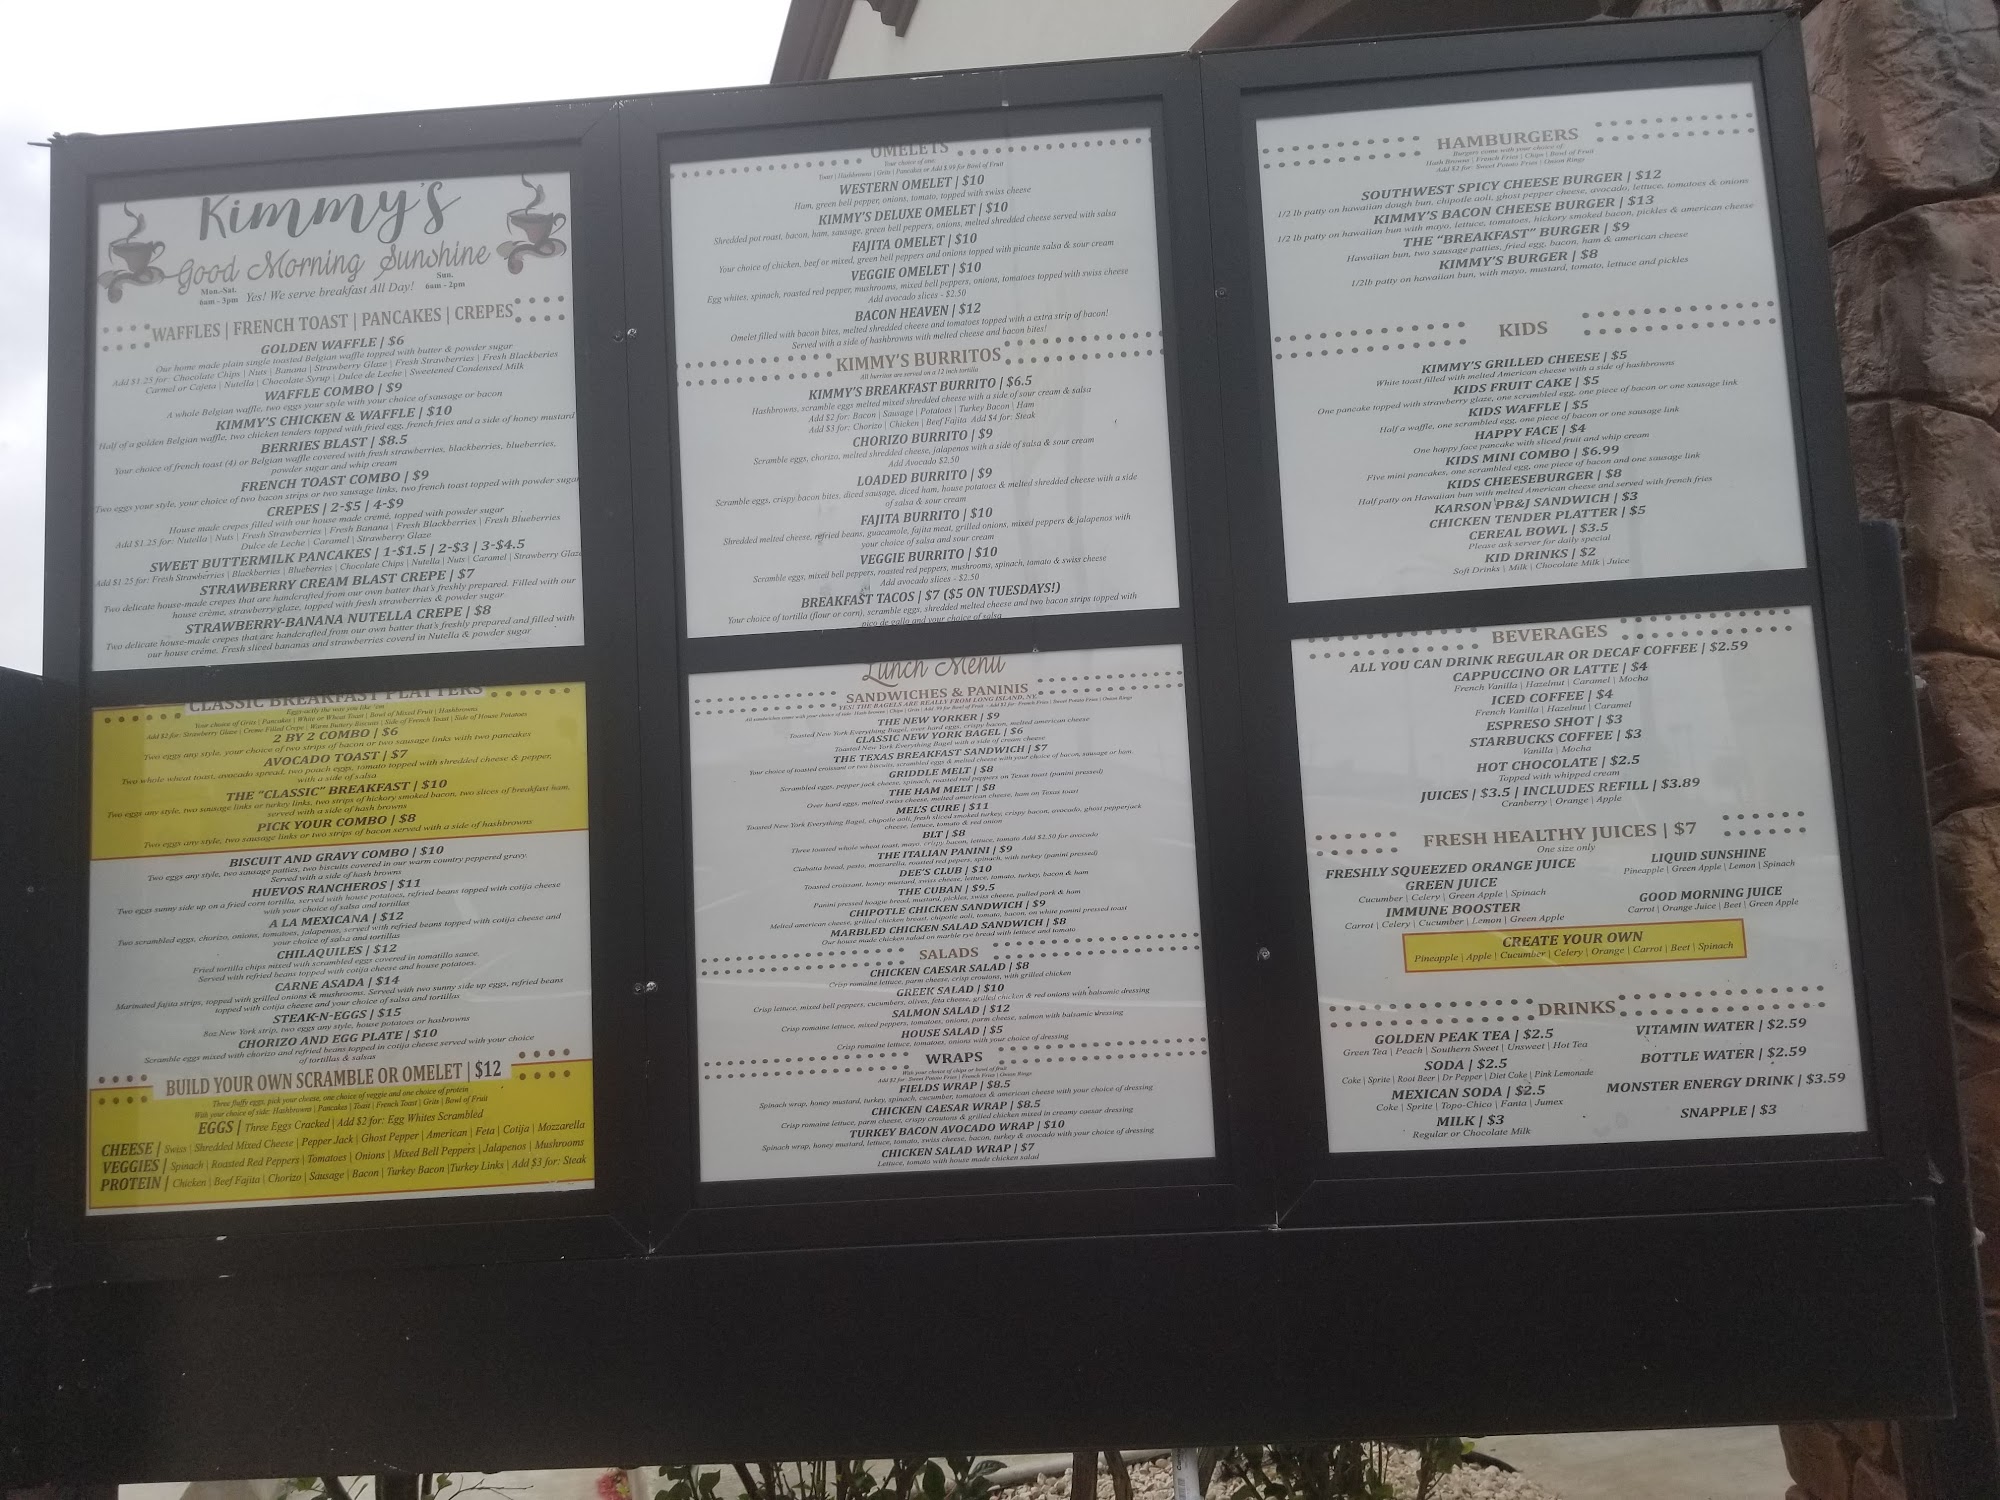 Kimmy's
Good Morning Sunshine
Mon.-Sat.
6am - 3pm
Yes! We serve breakfast All Day!
Sun.
6am - 2pm
WAFFLES | FRENCH TOAST | PANCAKES | CREPES
GOLDEN WAFFLE | $6
Our home made plain single toasted Belgian waffle topped with butter & powder sugar
Add $1.25 for: Chocolate Chips | Nuts | Banana | Strawberry Glaze | Fresh Strawberries | Fresh Blackberies
Carmel or Cajeta | Nutella | Chocolate Syrup | Dulce de Leche | Sweetened Condensed Milk
WAFFLE COMBO | $9
A whole Belgian waffle, two eggs your style with your choice of sausage or bacon
KIMMY'S CHICKEN & WAFFLE | $10
Half of a golden Belgian waffle, two chicken tenders topped with fried egg, french fries and a side of honey mustard
BERRIES BLAST | $8.5
Your choice of french toast (4) or Belgian waffle covered with fresh strawberries, blackberries, blueberries,
powder sugar and whip cream
FRENCH TOAST COMBO | $9
Two eggs your style, your choice of two bacon strips or two sausage links, two french toast topped with powder sugar
CREPES | 2-$5 | 4-$9
House made crepes filled with our house made cremé, topped with powder sugar
Add $1.25 for: Nutella | Nuts | Fresh Strawberries | Fresh Banana | Fresh Blackberries | Fresh Blueberries
Dulce de Leche | Caramel | Strawberry Glaze
SWEET BUTTERMILK PANCAKES | 1-$1.5 | 2-$3 | 3-$4.5
Add $1.25 for: Fresh Strawberries | Blackberries | Blueberries | Chocolate Chips | Nutella | Nuts | Caramel | Strawberry Glaze
STRAWBERRY CREAM BLAST CREPE | $7
Two delicate house-made crepes that are handcrafted from our own batter that's freshly prepared. Filled with our
house créme, strawberry glaze, topped with fresh strawberries & powder sugar
STRAWBERRY-BANANA NUTELLA CREPE | $8
Two delicate house-made crepes that are handcrafted from our own batter that's freshly prepared and filled with
our house créme. Fresh sliced bananas and strawberries coverd in Nutella & powder sugar
CLASSIC BREAKFAST PLATTERS
Eggs-actly the way you like 'em
Your choice of Grits | Pancakes | White or Wheat Toast | Bowl of Mixed Fruit | Hashbrowns
Add $2 for: Strawberry Glaze | Créme Filled Crepe | Warm Buttery Biscuits | Side of French Toast | Side of House Potatoes
2 BY 2 COMBO | $6
Two eggs any style, your choice of two strips of bacon or two sausage links with two pancakes
AVOCADO TOAST | $7
Two whole wheat toast, avocado spread, two poach eggs, tomato topped with shredded cheese & pepper,
with a side of salsa
THE "CLASSIC" BREAKFAST | $10
Two eggs any style, two sausage links or turkey links, two strips of hickory smoked bacon, two slices of breakfast ham,
served with a side of hash browns
PICK YOUR COMBO | $8
Two eggs any style, two sausage links or two strips of bacon served with a side of hashbrowns
BISCUIT AND GRAVY COMBO | $10
Two eggs any style, two sausage patties, two biscuits covered in our warm country peppered gravy.
Served with a side of hash browns
HUEVOS RANCHEROS | $11
Two eggs sunny side up on a fried corn tortilla, served with house potatoes, refried beans topped with cotija cheese
with your choice of salsa and tortillas
A LA MEXICANA | $12
Two scrambled eggs, chorizo, onions, tomatoes, jalapenos, served with refried beans topped with cotija cheese and
your choice of salsa and tortillas
CHILAQUILES | $12
Fried tortilla chips mixed with scrambled eggs covered in tomatillo sauce.
Served with refried beans topped with cotija cheese and house potatoes.
CARNE ASADA | $14
Marinated fajita strips, topped with grilled onions & mushrooms. Served with two sunny side up eggs, refried beans
topped with cotija cheese and your choice of salsa and tortillas
STEAK-N-EGGS | $15
8oz New York strip, two eggs any style, house potatoes or hasbrowns
CHORIZO AND EGG PLATE | $10
Scramble eggs mixed with chorizo and refried beans topped in cotija cheese served with your choice
of tortillas & salsas
BUILD YOUR OWN SCRAMBLE OR OMELET | $12
Three fluffy eggs, pick your cheese, one choice of veggie and one choice of protein
With your choice of side: Hashbrowns | Pancakes | Toast | French Toast | Grits | Bowl of Fruit
EGGS | Three Eggs Cracked | Add $2 for: Egg Whites Scrambled
CHEESE | Swiss | Shredded Mixed Cheese | Pepper Jack | Ghost Pepper | American | Feta | Cotija | Mozzarella
VEGGIES | Spinach | Roasted Red Peppers | Tomatoes | Onions | Mixed Bell Peppers | Jalapenos | Mushrooms
PROTEIN | Chicken | Beef Fajita | Chorizo | Sausage | Bacon | Turkey Bacon |Turkey Links | Add $3 for: Steak
OMELETS
Your choice of one:
Toast | Hashbrowns | Grits | Pancakes or Add $.99 for Bowl of Fruit
WESTERN OMELET | $10
Ham, green bell pepper, onions, tomato, topped with swiss cheese
KIMMY'S DELUXE OMELET | $10
Shredded pot roast, bacon, ham, sausage, green bell peppers, onions, melted shredded cheese served with salsa
FAJITA OMELET | $10
Your choice of chicken, beef or mixed, green bell peppers and onions topped with picante salsa & sour cream
VEGGIE OMELET | $10
Egg whites, spinach, roasted red pepper, mushrooms, mixed bell peppers, onions, tomatoes topped with swiss cheese
Add avocado slices - $2.50
BACON HEAVEN | $12
Omelet filled with bacon bites, melted shredded cheese and tomatoes topped with a extra strip of bacon!
Served with a side of hashbrowns with melted cheese and bacon bites!
KIMMY'S BURRITOS
All burritos are served on a 12 inch tortilla
KIMMY'S BREAKFAST BURRITO | $6.5
Hashbrowns, scramble eggs melted mixed shredded cheese with a side of sour cream & salsa
Add $2 for: Bacon | Sausage | Potatoes | Turkey Bacon | Ham
Add $3 for: Chorizo | Chicken | Beef Fajita Add $4 for: Steak
CHORIZO BURRITO | $9
Scramble eggs, chorizo, melted shredded cheese, jalapenos with a side of salsa & sour cream
Add Avocado $2.50
LOADED BURRITO | $9
Scramble eggs, crispy bacon bites, diced sausage, diced ham, house potatoes & melted shredded cheese with a side
of salsa & sour cream
FAJITA BURRITO | $10
Shredded melted cheese, refried beans, guacamole, fajita meat, grilled onions, mixed peppers & jalapenos with
your choice of salsa and sour cream
VEGGIE BURRITO | $10
Scramble eggs, mixed bell peppers, roasted red peppers, mushrooms, spinach, tomato & swiss cheese
Add avocado slices - $2.50
BREAKFAST TACOS | $7 ($5 ON TUESDAYS!)
Your choice of tortilla (flour or corn), scramble eggs, shredded melted cheese and two bacon strips topped with
pico de gallo and your choice of salsa
Lunch Menu
SANDWICHES & PANINIS
YES! THE BAGELS ARE REALLY FROM LONG ISLAND, NY.
All sandwiches come with your choice of side: Hash browns | Chips | Grits | Add .99 for Bowl of Fruit - Add $2 for: French Fries | Sweet Potato Fries | Onion Rings
THE NEW YORKER | $9
Toasted New York Everything Bagel, over hard eggs, crispy bacon, melted american cheese
CLASSIC NEW YORK BAGEL | $6
Toasted New York Everything Bagel with a side of cream cheese
THE TEXAS BREAKFAST SANDWICH | $7
Your choice of toasted croissant or two biscuits, scrambled eggs & melted cheese with your choice of bacon, sausage or ham.
GRIDDLE MELT | $8
Scrambled eggs, pepper jack cheese, spinach, roasted red peppers on Texas toast (panini pressed)
THE HAM MELT | $8
Over hard eggs, melted swiss cheese, melted american cheese, ham on Texas toast
MEL'S CURE | $11
Toasted New York Everything Bagel, chipotle aoli, fresh sliced smoked turkey, crispy bacon, avocado, ghost pepperjack
cheese, lettuce, tomato & red onion
BLT | $8
Three toasted whole wheat toast, mayo, crispy bacon, lettuce, tomato Add $2.50 for avocado
THE ITALIAN PANINI | $9
Ciabatta bread, pesto, mozzarella, roasted red pepers, spinach, with turkey (panini pressed)
DEE'S CLUB | $10
Toasted croissant, honey mustard, swiss cheese, lettuce, tomato, turkey, bacon & ham
THE CUBAN | $9.5
Panini pressed hoagie bread, mustard, pickles, swiss cheese, pulled pork & ham
CHIPOTLE CHICKEN SANDWICH | $9
Melted american cheese, grilled chicken breast, chipotle aoli, tomato, bacon, on white panini pressed toast
MARBLED CHICKEN SALAD SANDWICH | $8
Our house made chicken salad on marble rye bread with lettuce and tomato
SALADS
CHICKEN CAESAR SALAD | $8
Crisp romaine lettuce, parm cheese, crisp croutons, with grilled chicken
GREEK SALAD | $10
Crisp lettuce, mixed bell peppers, cucumbers, olives, feta cheese, grilled chicken & red onions with balsamic dressing
SALMON SALAD | $12
Crisp romaine lettuce, mixed peppers, tomatoes, onions, parm cheese, salmon with balsamic dressing
HOUSE SALAD | $5
Crisp romaine lettuce, tomatoes, onions with your choice of dressing
WRAPS
With your choice of chips or bowl of fruit
Add $2 for: Sweet Potato Fries | French Fries | Onion Rings
FIELDS WRAP | $8.5
Spinach wrap, honey mustard, turkey, spinach, cucumber, tomatoes & american cheese with your choice of dressing
CHICKEN CAESAR WRAP | $8.5
Crisp romaine lettuce, parm cheese, crispy croutons & grilled chicken mixed in creamy caesar dressing
TURKEY BACON AVOCADO WRAP | $10
Spinach wrap, honey mustard, lettuce, tomato, swiss cheese, bacon, turkey & avocado with your choice of dressing
CHICKEN SALAD WRAP | $7
Lettuce, tomato with house made chicken salad
HAMBURGERS
Burgers come with your choice of:
Hash Browns | French Fries | Chips | Bowl of Fruit
Add $2 for: Sweet Potato Fries | Onion Rings
SOUTHWEST SPICY CHEESE BURGER | $12
1/2 lb patty on hawaiian dough bun, chipotle aoli, ghost pepper cheese, avocado, lettuce, tomatoes & onions
KIMMY'S BACON CHEESE BURGER | $13
1/2 lb patty on hawaiian bun with mayo, lettuce, tomatoes, hickory smoked bacon, pickles & american cheese
THE "BREAKFAST" BURGER | $9
Hawaiian bun, two sausage patties, fried egg, bacon, ham & american cheese
KIMMY'S BURGER | $8
1/2lb patty on hawaiian bun, with mayo, mustard, tomato, lettuce and pickles
KIDS
KIMMY'S GRILLED CHEESE | $5
White toast filled with melted American cheese with a side of hashbrowns
KIDS FRUIT CAKE | $5
One pancake topped with strawberry glaze, one scrambled egg, one piece of bacon or one sausage link
KIDS WAFFLE | $5
Half a waffle, one scrambled egg, one piece of bacon or one sausage link
HAPPY FACE | $4
One happy face pancake with sliced fruit and whip cream
KIDS MINI COMBO | $6.99
Five mini pancakes, one scrambled egg, one piece of bacon and one sausage link
KIDS CHEESEBURGER | $8
Half patty on Hawaiian bun with melted American cheese and served with french fries
KARSON PB&J SANDWICH | $3
CHICKEN TENDER PLATTER | $5
CEREAL BOWL | $3.5
Please ask server for daily special
KID DRINKS | $2
Soft Drinks | Milk | Chocolate Milk | Juice
BEVERAGES
ALL YOU CAN DRINK REGULAR OR DECAF COFFEE | $2.59
CAPPUCCINO OR LATTE | $4
French Vanilla | Hazelnut | Caramel | Mocha
ICED COFFEE | $4
French Vanilla | Hazelnut | Caramel
ESPRESO SHOT | $3
STARBUCKS COFFEE | $3
Vanilla | Mocha
HOT CHOCOLATE | $2.5
Topped with whipped cream
JUICES | $3.5 | INCLUDES REFILL | $3.89
Cranberry | Orange | Apple
FRESH HEALTHY JUICES | $7
One size only
FRESHLY SQUEEZED ORANGE JUICE
GREEN JUICE
Cucumber | Celery | Green Apple | Spinach
IMMUNE BOOSTER
Carrot | Celery | Cucumber | Lemon | Green Apple
LIQUID SUNSHINE
Pineapple | Green Apple | Lemon | Spinach
GOOD MORNING JUICE
Carrot | Orange Juice | Beet | Green Apple
CREATE YOUR OWN
Pineapple | Apple | Cucumber | Celery | Orange | Carrot | Beet | Spinach
DRINKS
GOLDEN PEAK TEA | $2.5
Green Tea | Peach | Southern Sweet | Unsweet | Hot Tea
SODA | $2.5
Coke | Sprite | Root Beer | Dr Pepper | Diet Coke | Pink Lemonade
MEXICAN SODA | $2.5
Coke | Sprite | Topo-Chico | Fanta | Jumex
MILK | $3
Regular or Chocolate Milk
VITAMIN WATER | $2.59
BOTTLE WATER | $2.59
MONSTER ENERGY DRINK | $3.59
SNAPPLE | $3